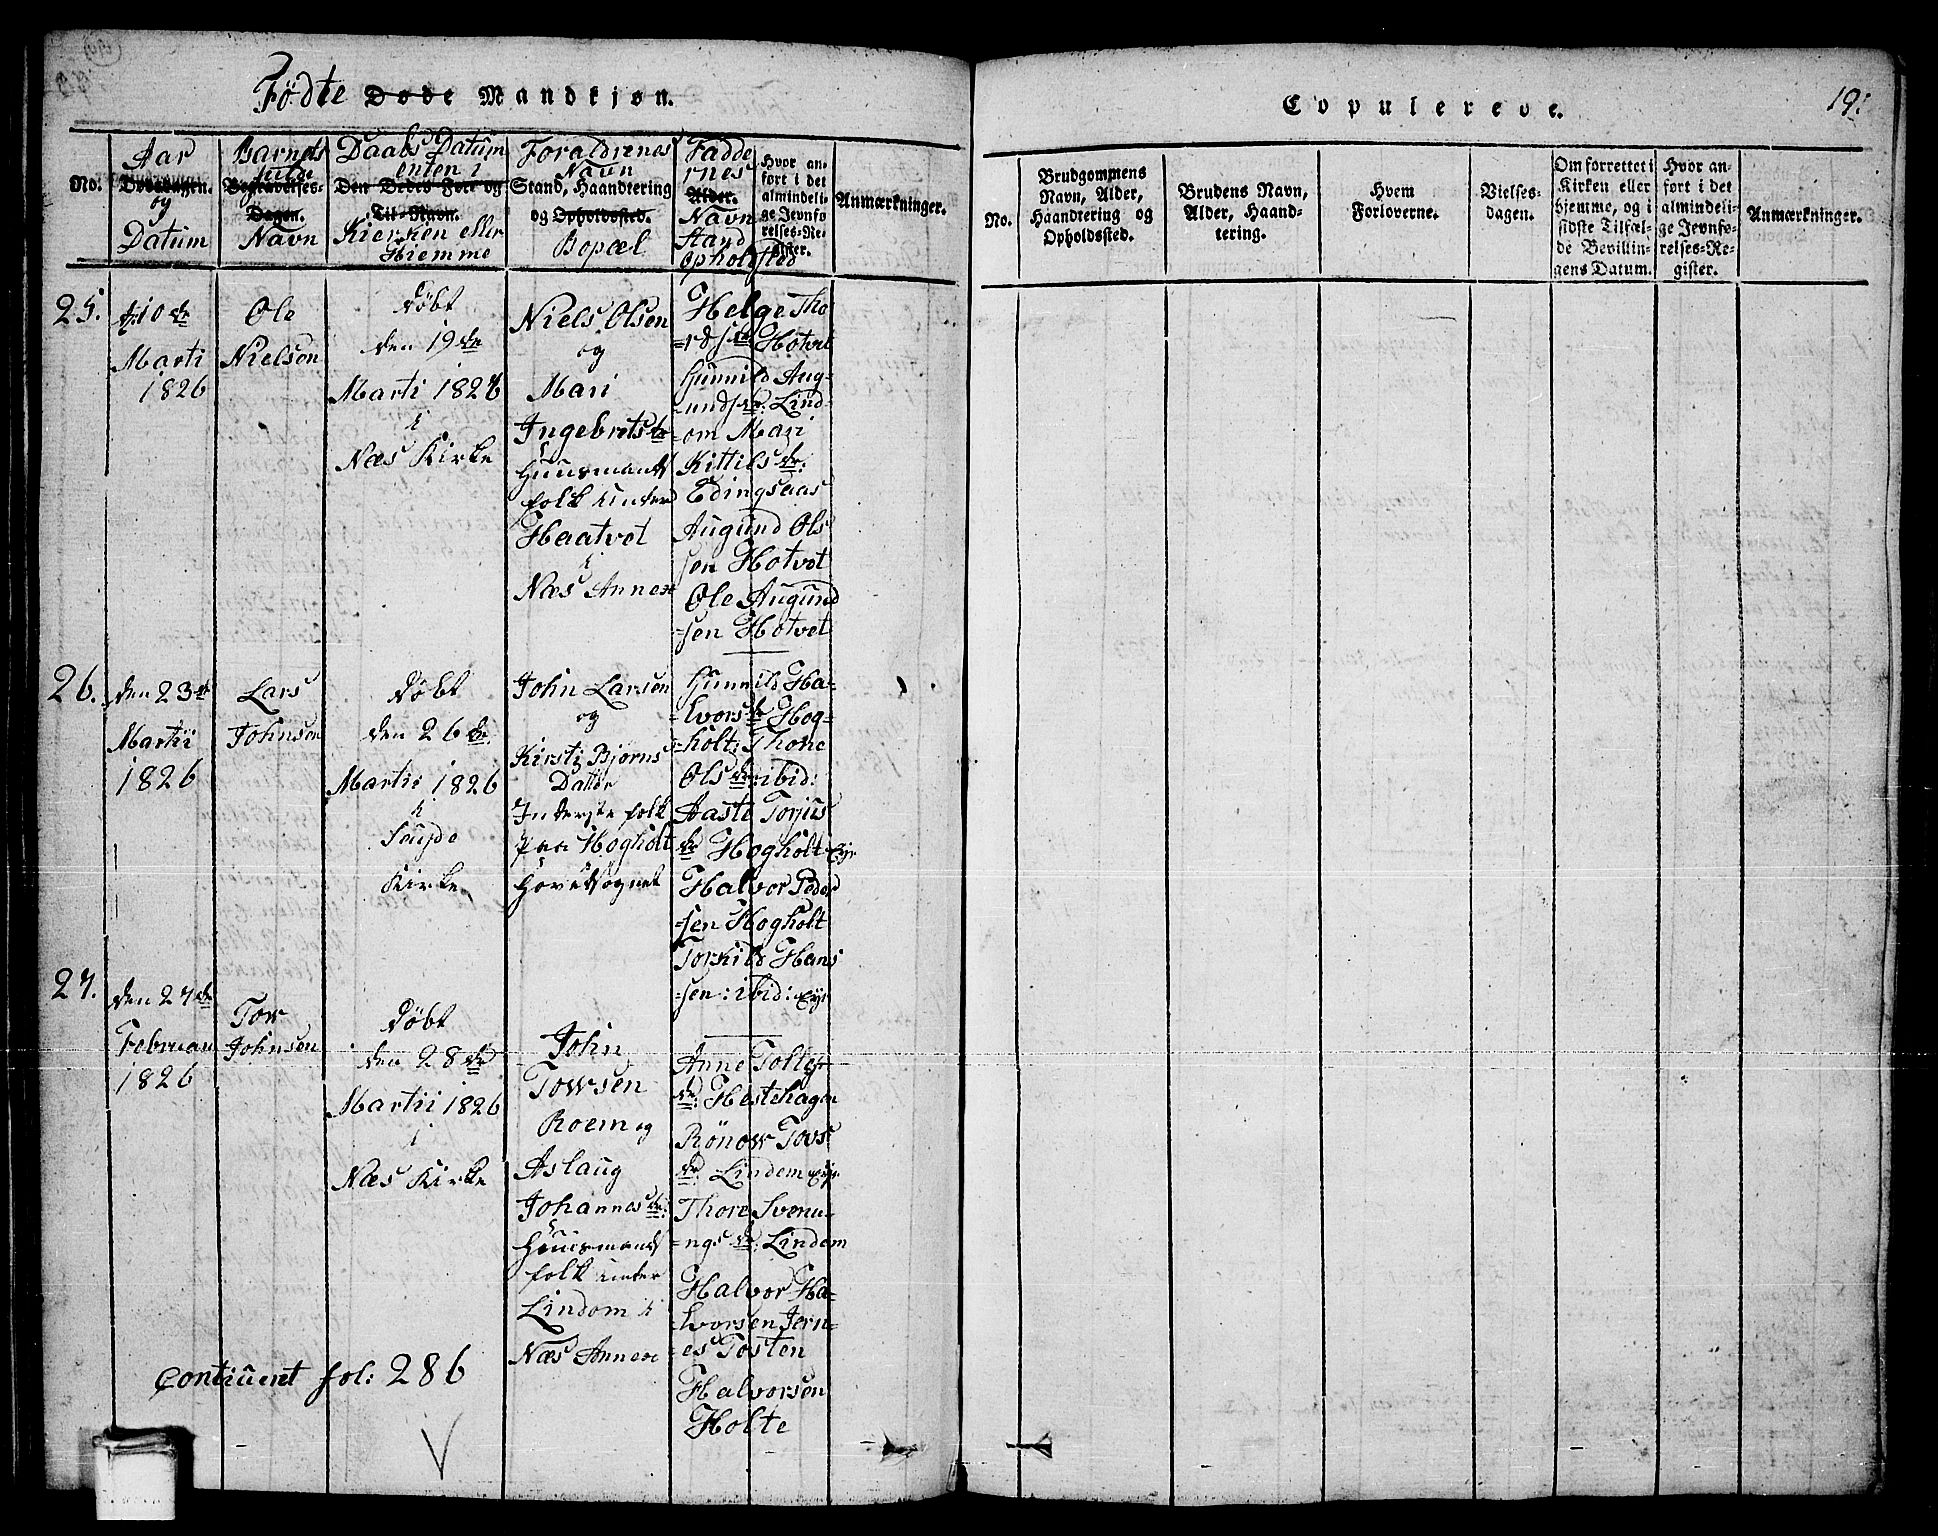 Fødte Døde Mandkjøn.
No.
Aar
Dødsdagen.
og
Datum
Barnets
fulde
Begravelses-
Dagen.
Navn
Daabs Datum
enten i
Den Dødes For- og
Til-Navn.
Kierken eller
Hiemme
Foraldrenes
Navn
Stand, Haandtering
og Opholdssted.
Bopæl
Fadde
rnes
Alder.
Navn
Stand
Opholdsted
Hvor an-
ført i det
almindeli-
ge Jevnfø-
relses-Re-
gister.
Anmærkninger.
25.
10de
Marti
1826
Ole
Nielsen
døbt
den 19de
Marti 1826
i
Næs Kirke
Niels Olsen
og
Mari
Ingebrets
Huusmands
folk under
Haatvet
i
Næs Annex
Helge Tho
=rds Hotvet
Gunnild Aug-
=unds dr: Lind-
=om Mari
Kittils dr:
Edingsaas
Augund Ols
sen Hotvet
Ole Augund
=sen Hotvet
26.
den 23de
Martii
1826
Lars
Johnsen
døbt
den 26de
Martii 1826
i
Soujde
Kirke
John Larsen
og
Kirsti Bjørns
Datter
Inderste folk
paa Hogholt
Hovetsognet
Gunnild Ha-
=lvors dr Hog-
=holt: Thone
Ols dr: ibid:
Aaste Torjus
dr Hogholt
Halvor Peder
=sen Hogholt
Torkild Hans
=sen: ibid:
27.
den 27de
Februari
1826
Tow
Johnsen
døbt
den 28de
Martii 1826
i
Næs Kirke
John
Towsen
Roem og
Aslaug
Johannes dr:
Huusmands
folk under
Lindom i
Næs Annex
Anne Tollefs
dr: Hestehagen
Rönow Tovs
dr: Lindem
Thore Svenu-
=ngs dr: Lindem
Halvor Ha-
=lvorsen Jern-
=es Tosten
Halvorsen
Holte
Contiueret fol: 286
Copulerede.
191
No.
Brudgommens
Navn, Alder,
Haandtering og
Opholdssted.
Brudens Navn,
Alder, Haand-
tering.
Hvem
Forloverne.
Vielses-
dagen.
Om forrettet i
Kirken eller
hjemme, og i
sidste Tilfæl-
de Bevillin-
gens Datum.
Hvor an-
ført i det
almindeli-
ge Jevnfø-
relses-Re-
gister.
Anmærkninger.